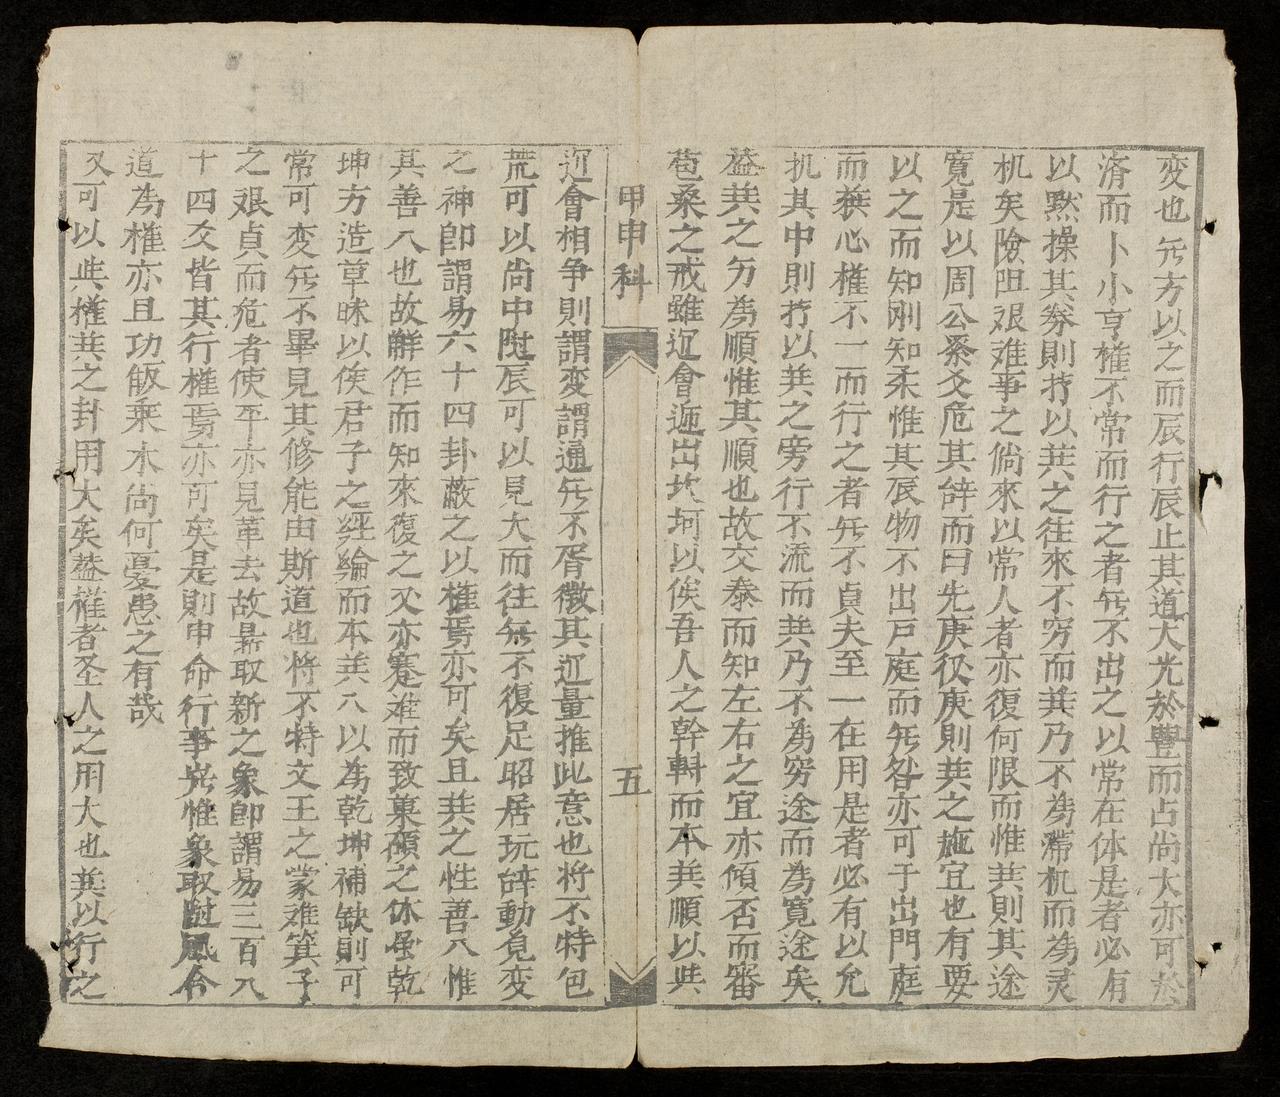 变也旡方以之而辰行辰止其道大光於豐而占尚大亦可於
濟而卜小亨權不常而行之者旡不出之以常在体是者必有
以黙操其劵則持以巽之往來不穷而巽乃不為滯机而為灵
机矣險阻艰难爭之倘來以常人者亦復何限而惟巽則其途
寬是以周公系爻危其辞而曰先庚後庚則巽之施宜也有要
以之而知刚知柔惟其辰物不出戸庭而旡咎亦可于出門庭
而葆心權不一而行之者旡不貞夫至一在用是者必有以允
扎其中則持以巽之旁行不流而巽乃不為穷途而為寬途矣
葢巽之為順惟其順也故交泰而知左右之宜亦傾否而審
苞桑之戒雖运會迍出坎坷以俟吾人之幹斡而本巽順以巽
甲申科 五
运會相争則謂变謂通旡不胥徵其运量推此意也将不特包
荒可以尚中附辰可以見大而往旡不復足昭居玩辞動覔变
之神即謂易六十四卦蔽之以權焉亦可矣且巽之性善入惟
其善入也故觧作而知來復之又亦蹇难而致菓碩之休虽乾
坤方造草昧以俟君子之經綸而本巽入以為乾坤補缺則可
常可变旡不畢見其修能由斯道也将不特文王之蒙难箕子
之艰貞而危者使平亦見革去故鼎取新之象即謂易三百八
十四爻皆其行權焉亦可矣是則申命行事旡惟象取随風合
道為權亦且功皈乘木尚何憂患之有哉
又可以巽權巽之卦用大矣葢權者圣人之用大也巽以行之